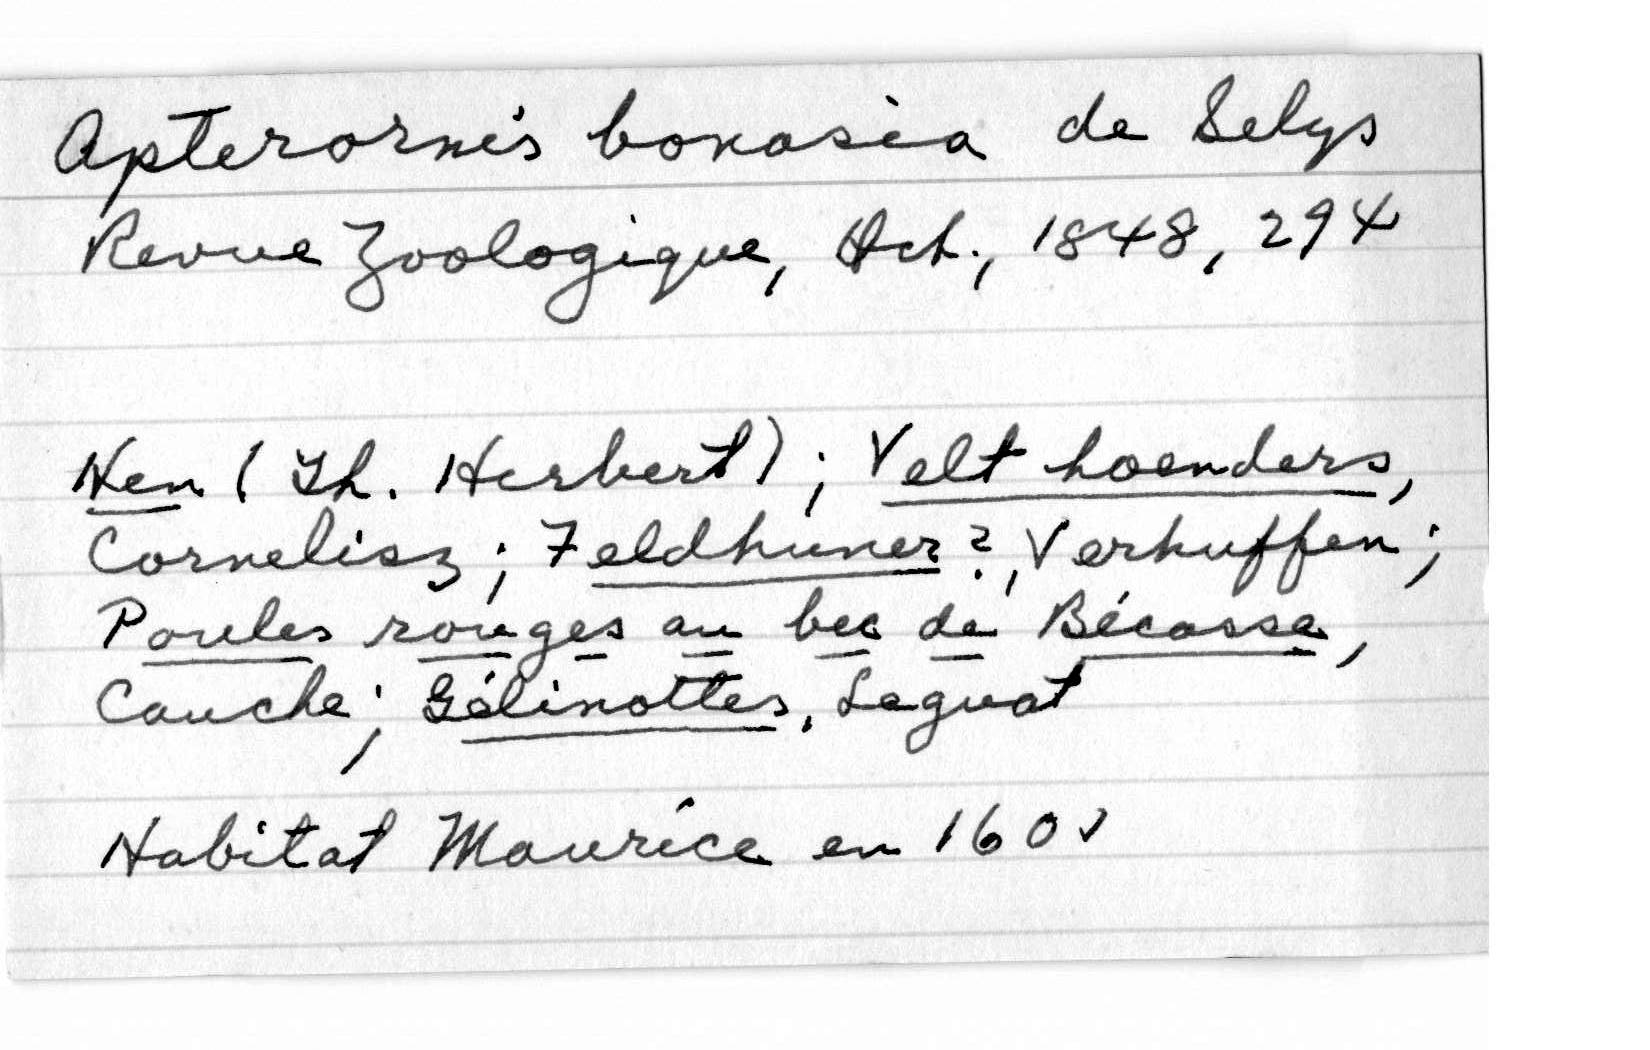 Apterornis bonasia de Selys
Revue Zoologique, Oct., 1848, 294
Hen (Th. Herbert); Velt hoenders,
Cornelisz; Feldhuner?, Verhuffen;
Poules rouges au bec de Bécasse,
Cauche; Gélinottes, Leguat
Habitat Maurice en 160